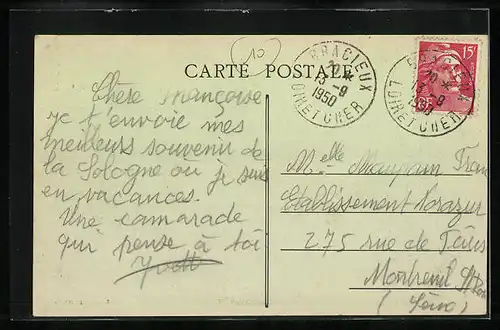 10
CARTE POSTALE
BRACIEUX
5-9
1950
LOIR ET CHER
15F
BRACIEUX
1950
LOIR ET CHER
Chère Françoise
je t'envoie mes
meilleurs souvenir de
la Sologne où je suis
en vacances.
Une camarade
qui pense à toi
Yvette
Melle Maupain Fran
Etablissement
275 rue de
Montreuil
(Seine)